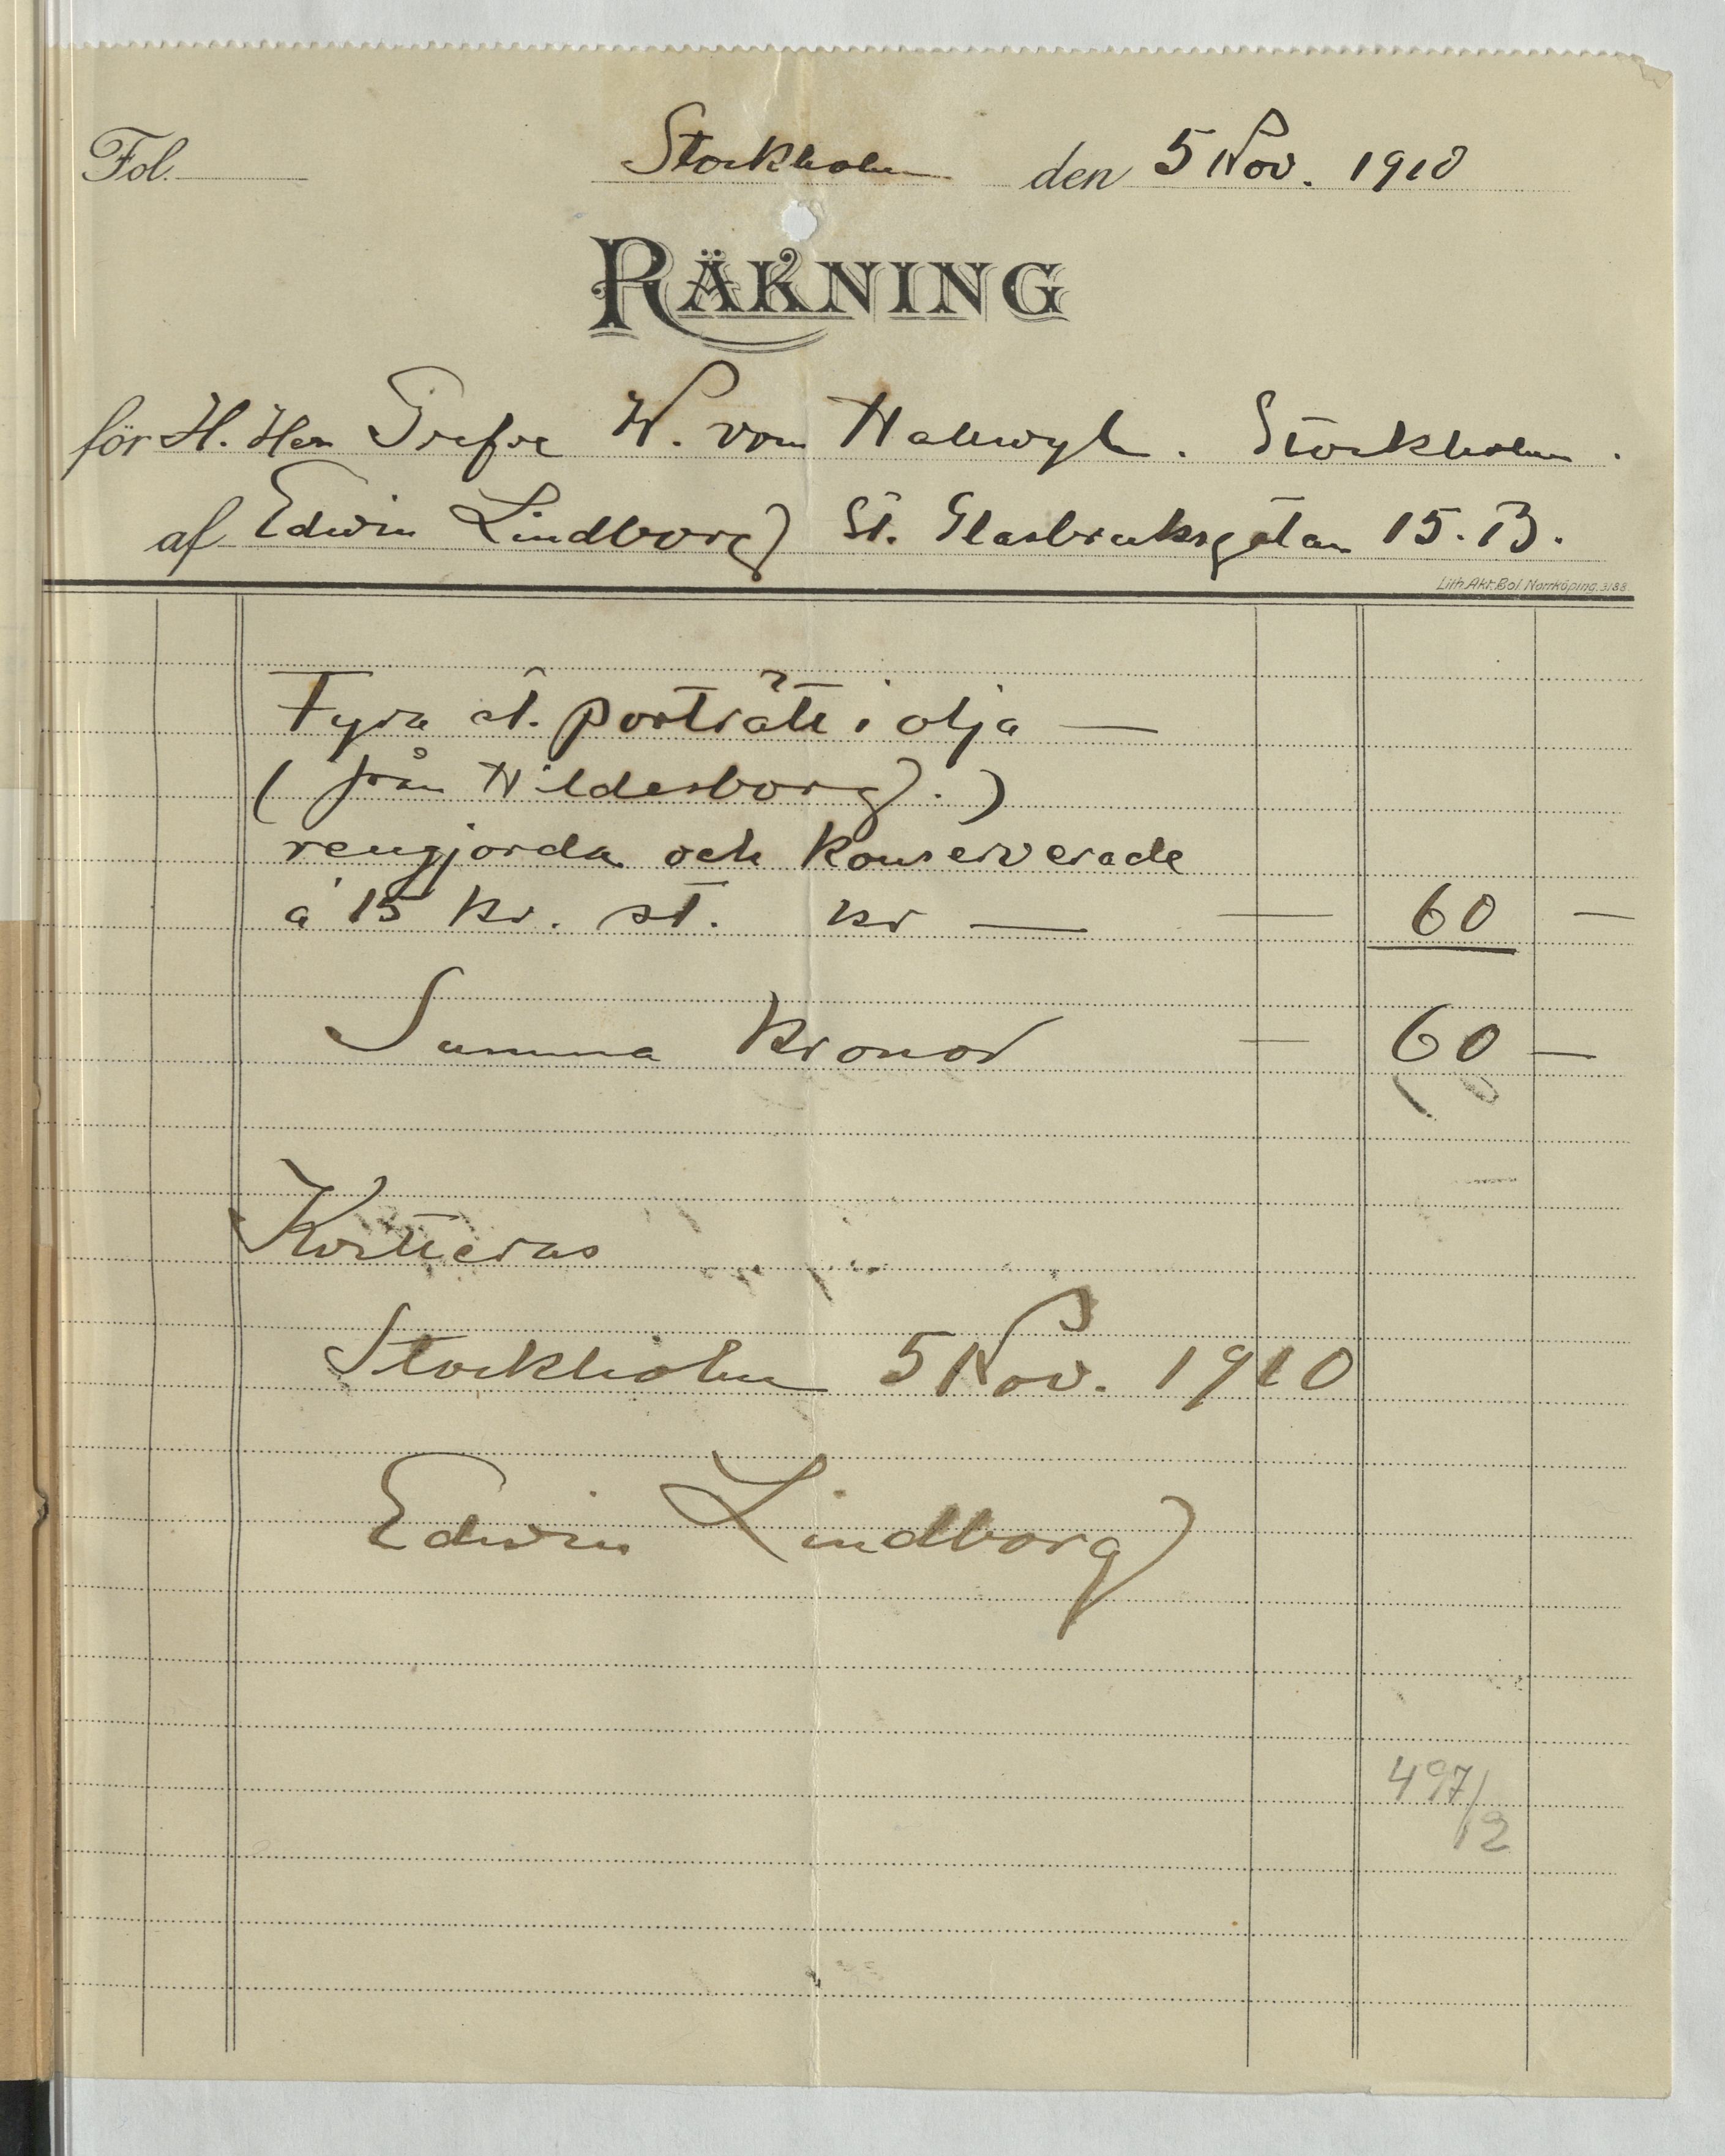 Fol. Stockholm den 5 Nov. 1910
RÄKNING
för H. Herr Grefve W. von Hallwyl. Stockholm.
af Edwin Lindborg St. Glasbruksgatan 15. B.
Lith. Akt. Bol. Norrköping. 3188
Fyra st. porträtt i olja —
(från Hildesborg.)
rengjorda och konserverade
à 15 kr. st. kr — — 60 —
Summa Kronor — 60 —
Kvitteras
Stockholm 5 Nov. 1910
Edwin Lindborg
497/2